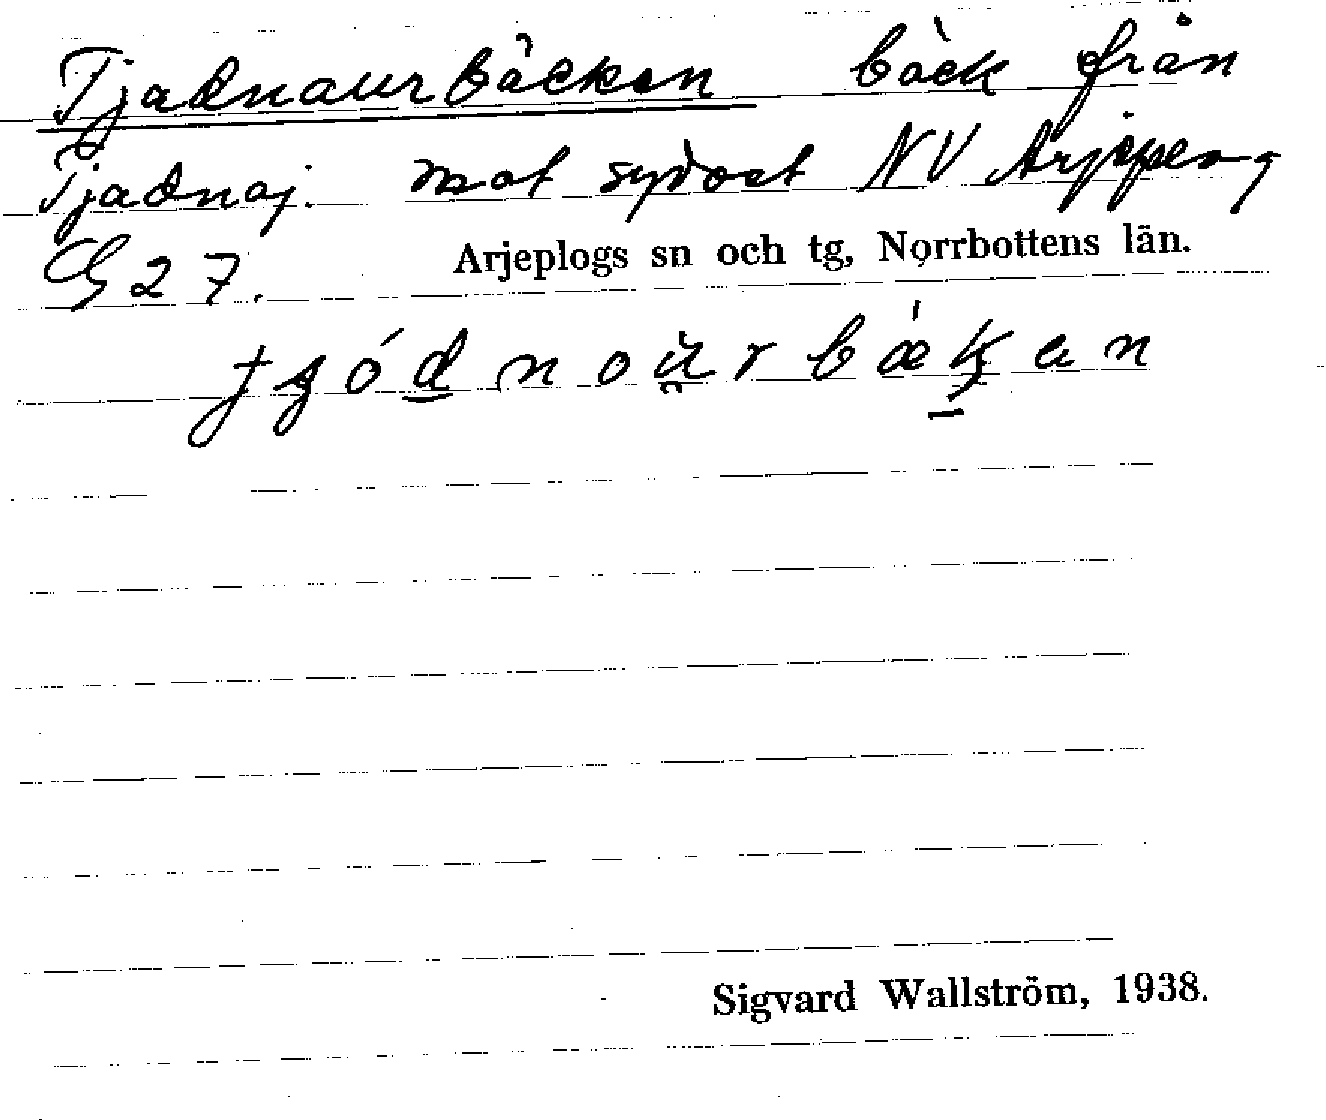 Tjadnaurbäcken bäck från
Tjadnaj. mot sydost NV Arjeplog
G 27. Arjeplogs sn och tg, Norrbottens län.
Sigvard Wallström, 1938.